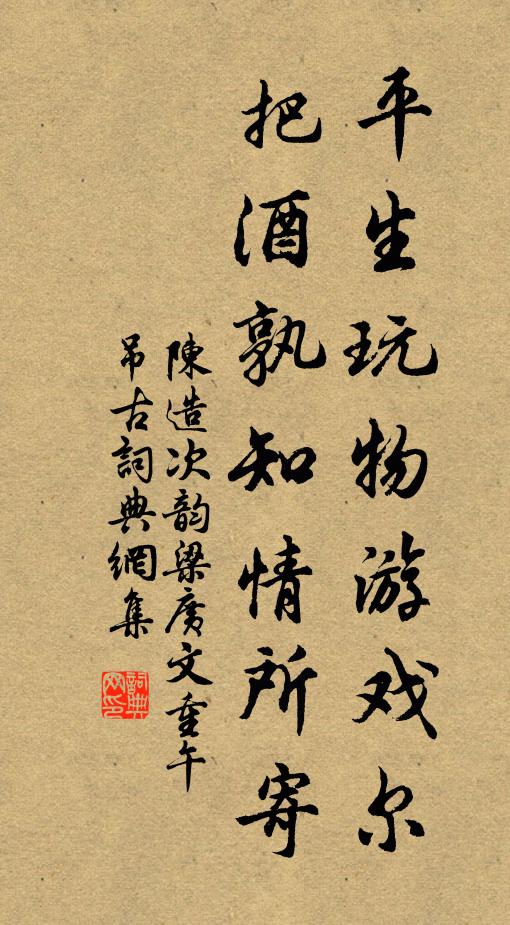 平生玩物游戏尔
把酒孰知情所寄
陳造次韵梁廣文重午
吊古詞典網集
詞典网印